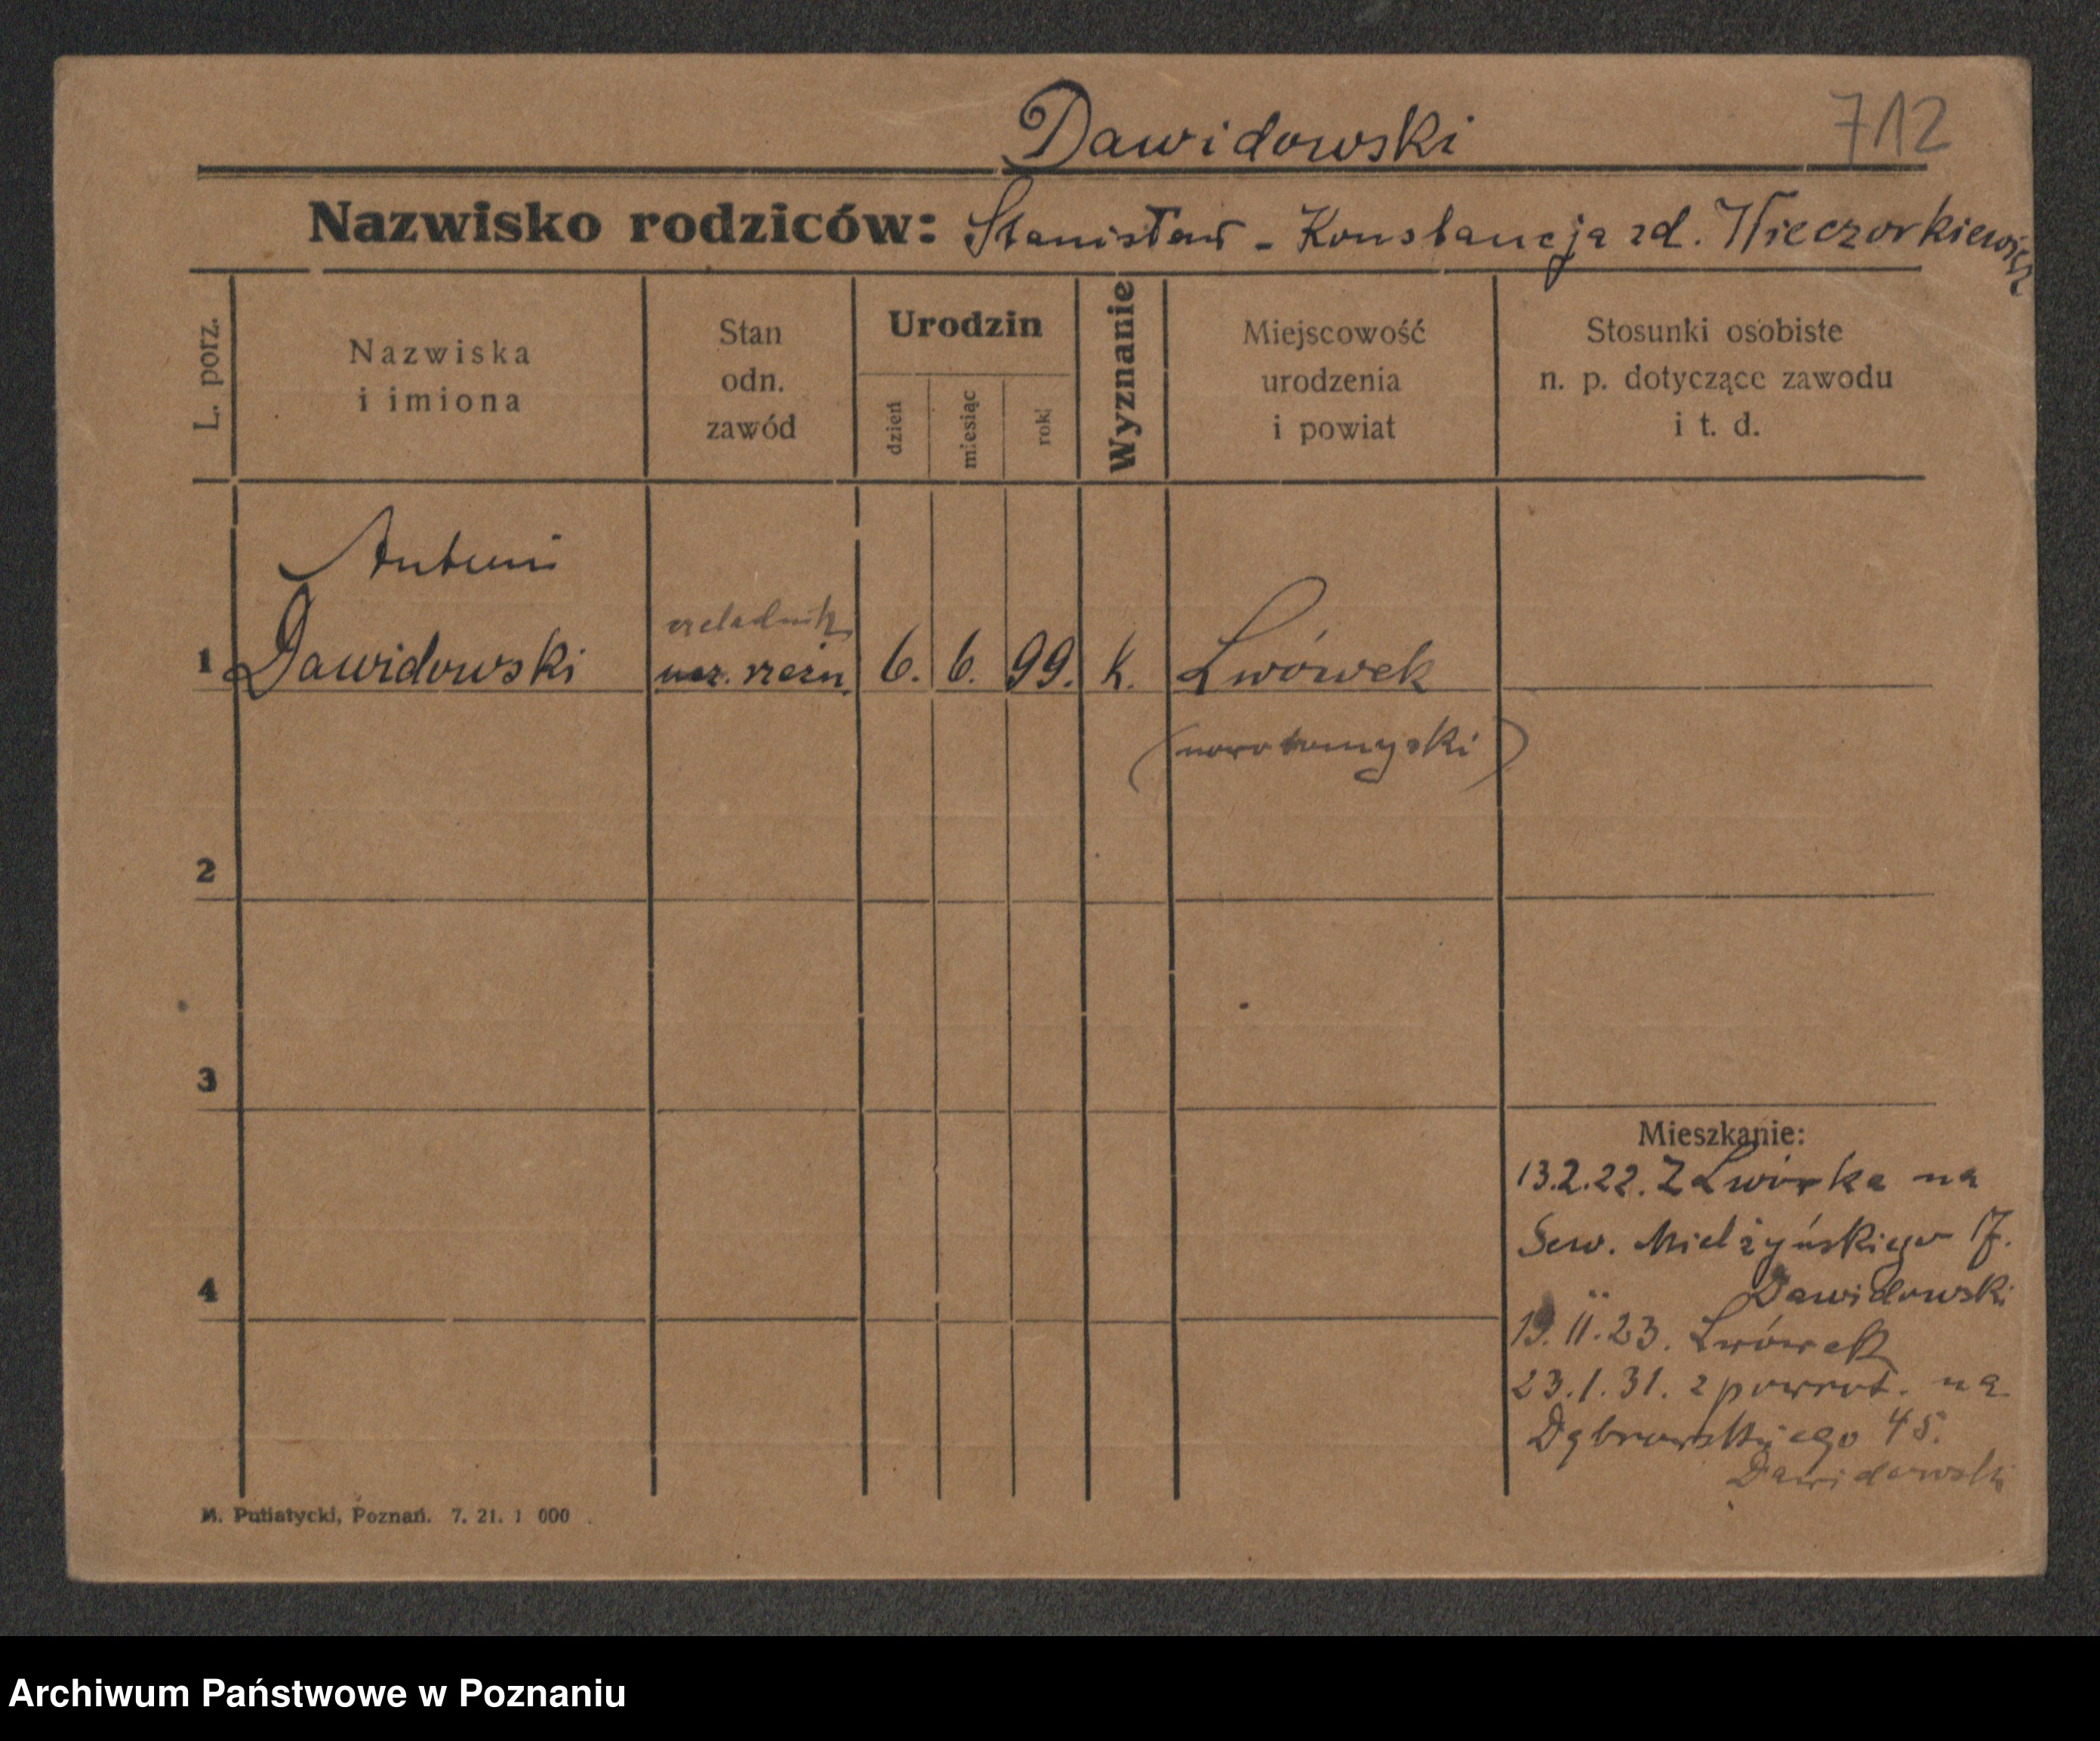 Dawidowski 712
Nazwisko rodziców: Stanisław - Konstancja zd. Wieczorkiewicz
L. porz.
Nazwiska
i imiona
Stan
odn.
zawód
Urodzin
dzień
miesiąc
rok
Wyznanie
Miejscowość
urodzenia
i powiat
Stosunki osobiste
n. p. dotyczące zawodu
i t. d.
Antoni
czeladnik
1 Dawidowski ucz. rzeźn. 6. 6. 99. k. Lwówek
(nowotomyski)
2
3
4
Mieszkanie:
13.2.22. Z Lwówka na
Sew. Mielżyńskiego 17.
Dawidowski
19. II. 23. Lwówek
23.1.31. z powrot. na
Dąbrowskiego 45.
Dawidowski
M. Putiatycki, Poznań. 7. 21. 1 000
Archiwum Państwowe w Poznaniu